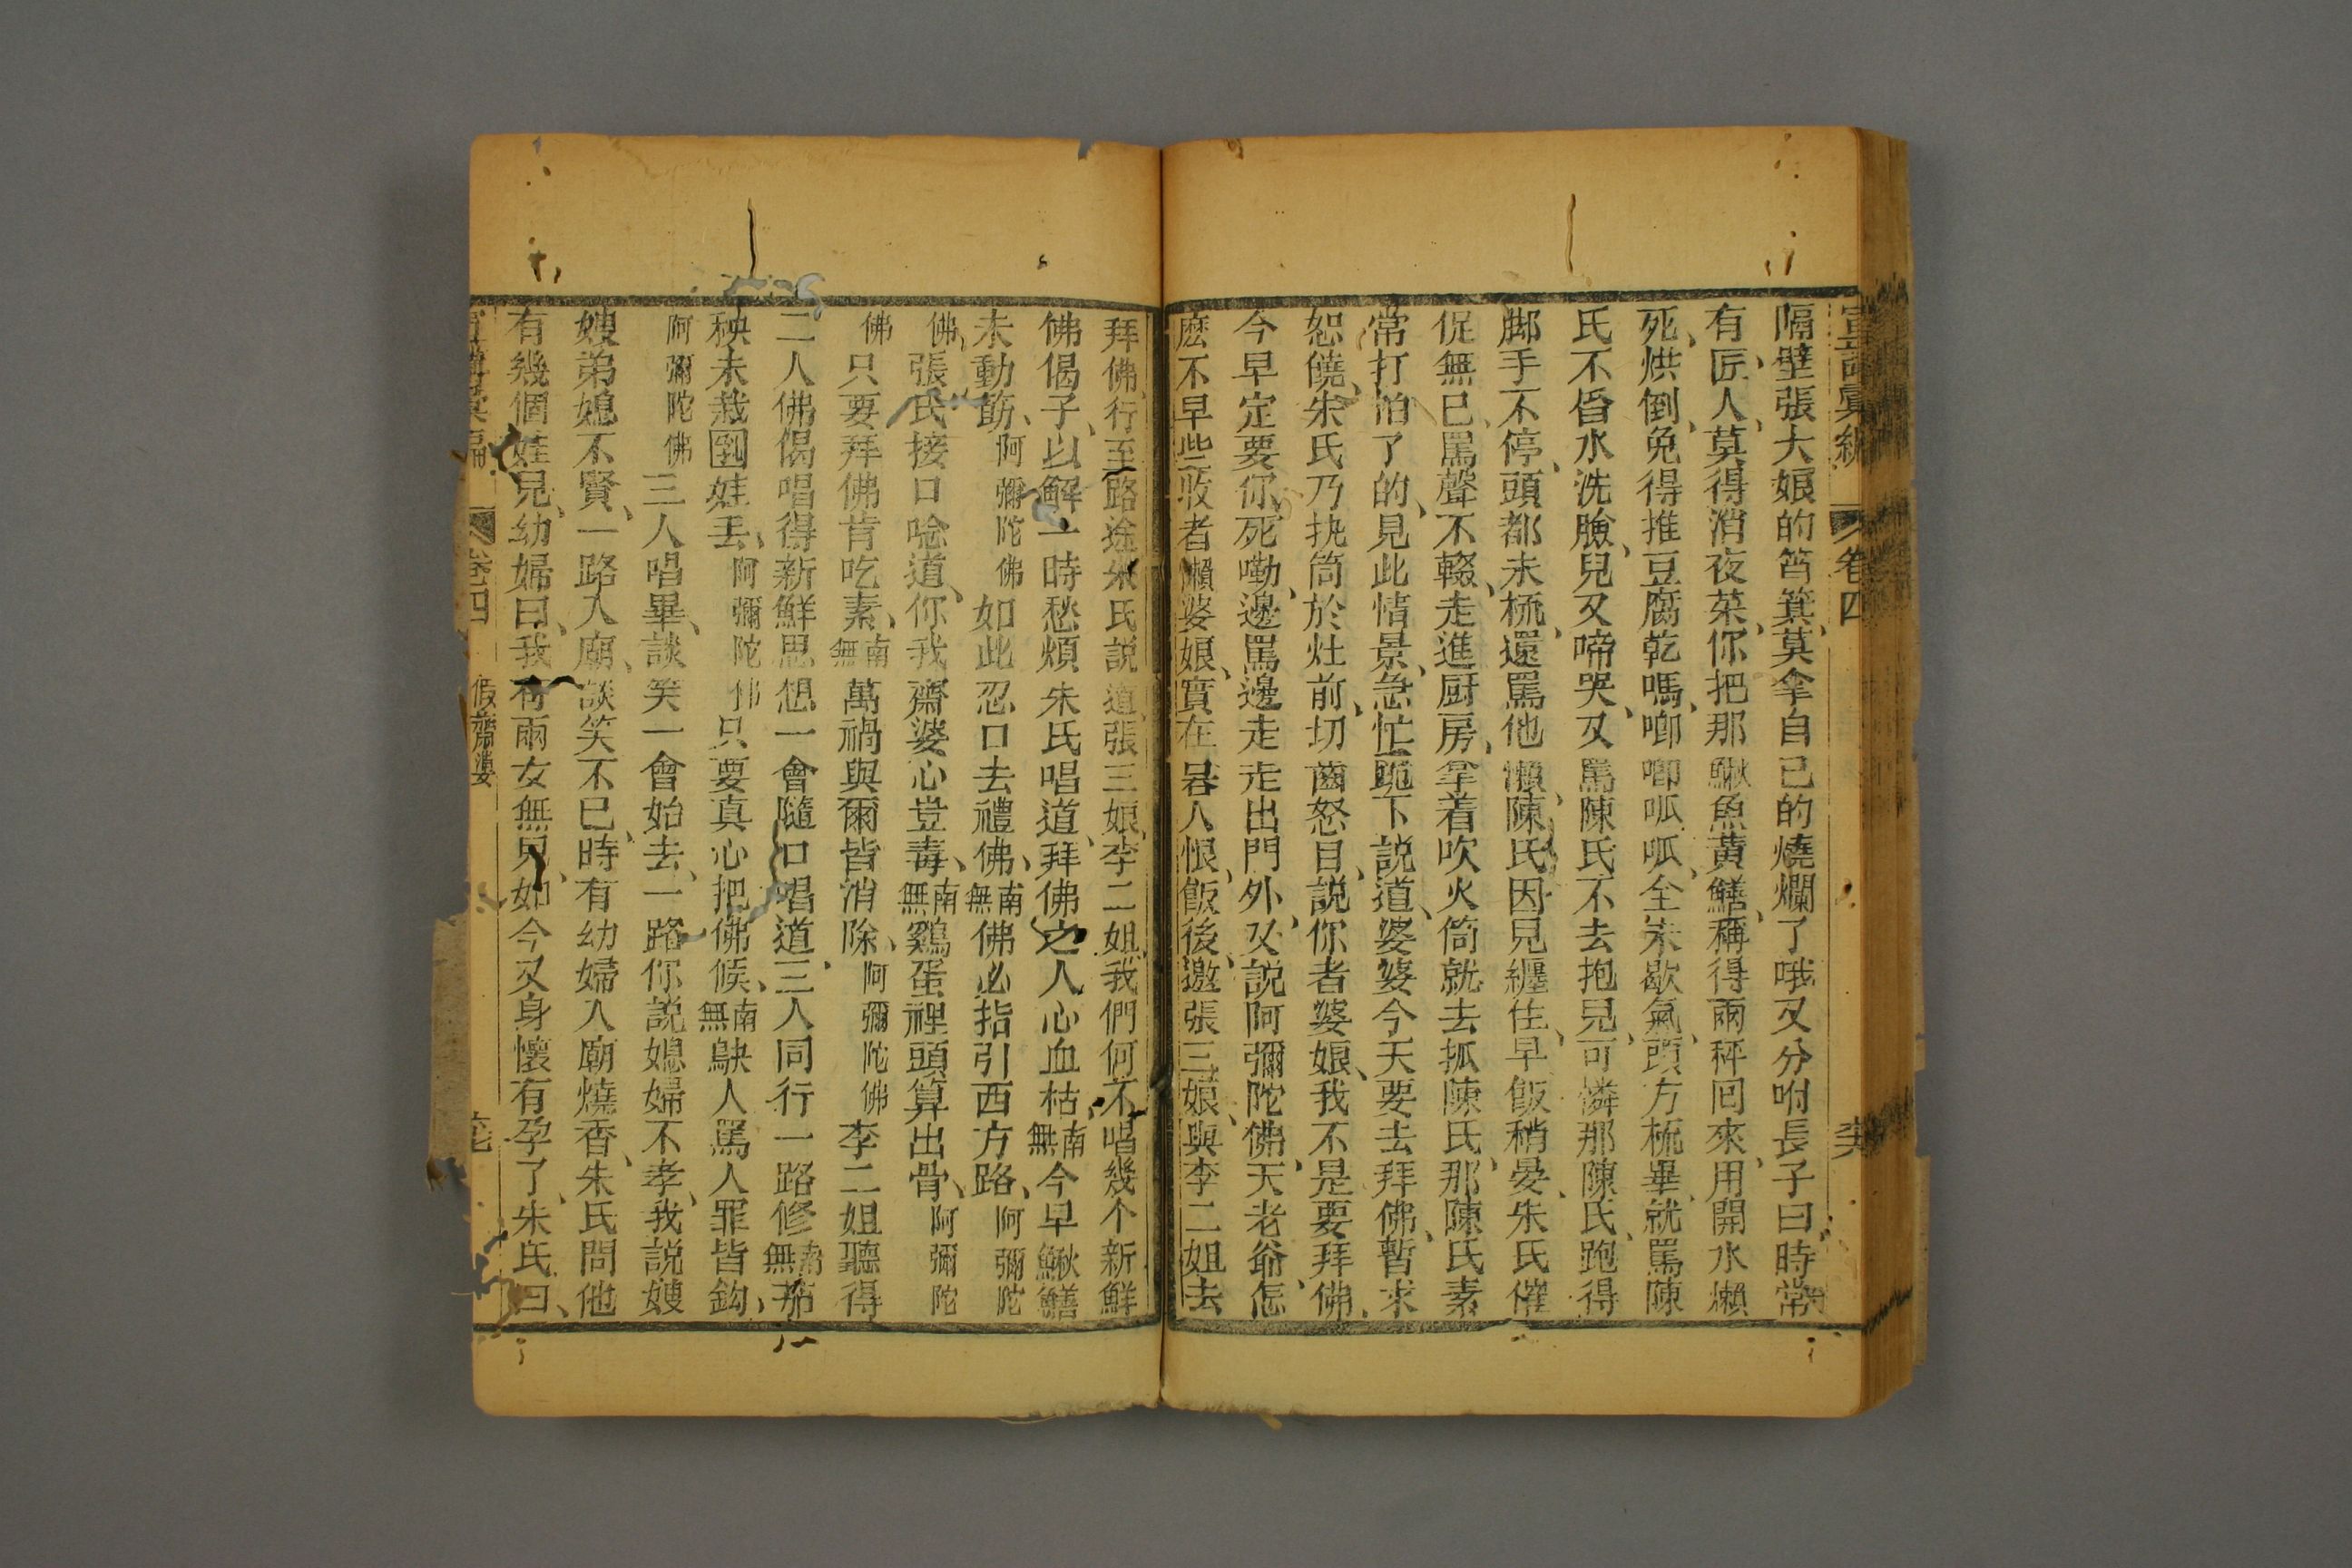 宣講彙編 卷四 共
隔壁張大娘的筲箕莫拿自己的燒爛了哦又分咐長子曰時常
有匠人莫得消夜菜你把那鰍魚黃鱔稱得兩秤回來用開水懶
死烘倒免得推豆腐乾嗎啣唧呱呱全朱歇氣頭方梳畢就罵陳
氏不舀水洗臉兒又啼哭又罵陳氏不去抱兒可憐那陳氏跑得
脚手不停頭都未梳還罵他懶陳氏因兒纏住早飯稍晏朱氏催
促無已罵聲不輟走進厨房拿着吹火筒就去抓陳氏那陳氏素
常打怕了的見此情景急忙跪下説道婆婆今天要去拜佛暫求
恕饒朱氏乃執筒於灶前切齒怒目説你者婆娘我不是要拜佛
今早定要你死嘞邊罵邊走走出門外又説阿彌陀佛天老爺怎
麽不早些收者懶婆娘實在㖠人恨飯後邀張三娘與李二姐去
拜佛行至路途朱氏説道張三娘李二姐我們何不唱幾个新鮮
佛偈子以解一時愁煩朱氏唱道拜佛之人心血枯南無今早鰍鱔
未動筯阿彌陀佛如此忍口去禮佛南無佛必指引西方路阿彌陀
佛張氏接口唸道你我齋婆心豈毒南無鷄蛋裡頭算出骨阿彌陀
佛只要拜佛肯吃素南無萬禍與爾皆消除阿彌陀佛李二姐聽得
二人佛偈唱得新鮮思想一會隨口唱道三人同行一路修南無茄
秧未栽 娃丟阿彌陀佛只要真心把佛候南無鴃人罵人罪皆鈎
阿彌陀佛三人唱畢談笑一會始去一路你説媳婦不孝我説嫂
嫂弟媳不賢一路入廟談笑不已時有幼婦入廟燒香朱氏問他
有幾個娃兒幼婦曰我有兩女無兒如今又身懷有孕了朱氏曰
宣講彙編 卷四 假齋婆